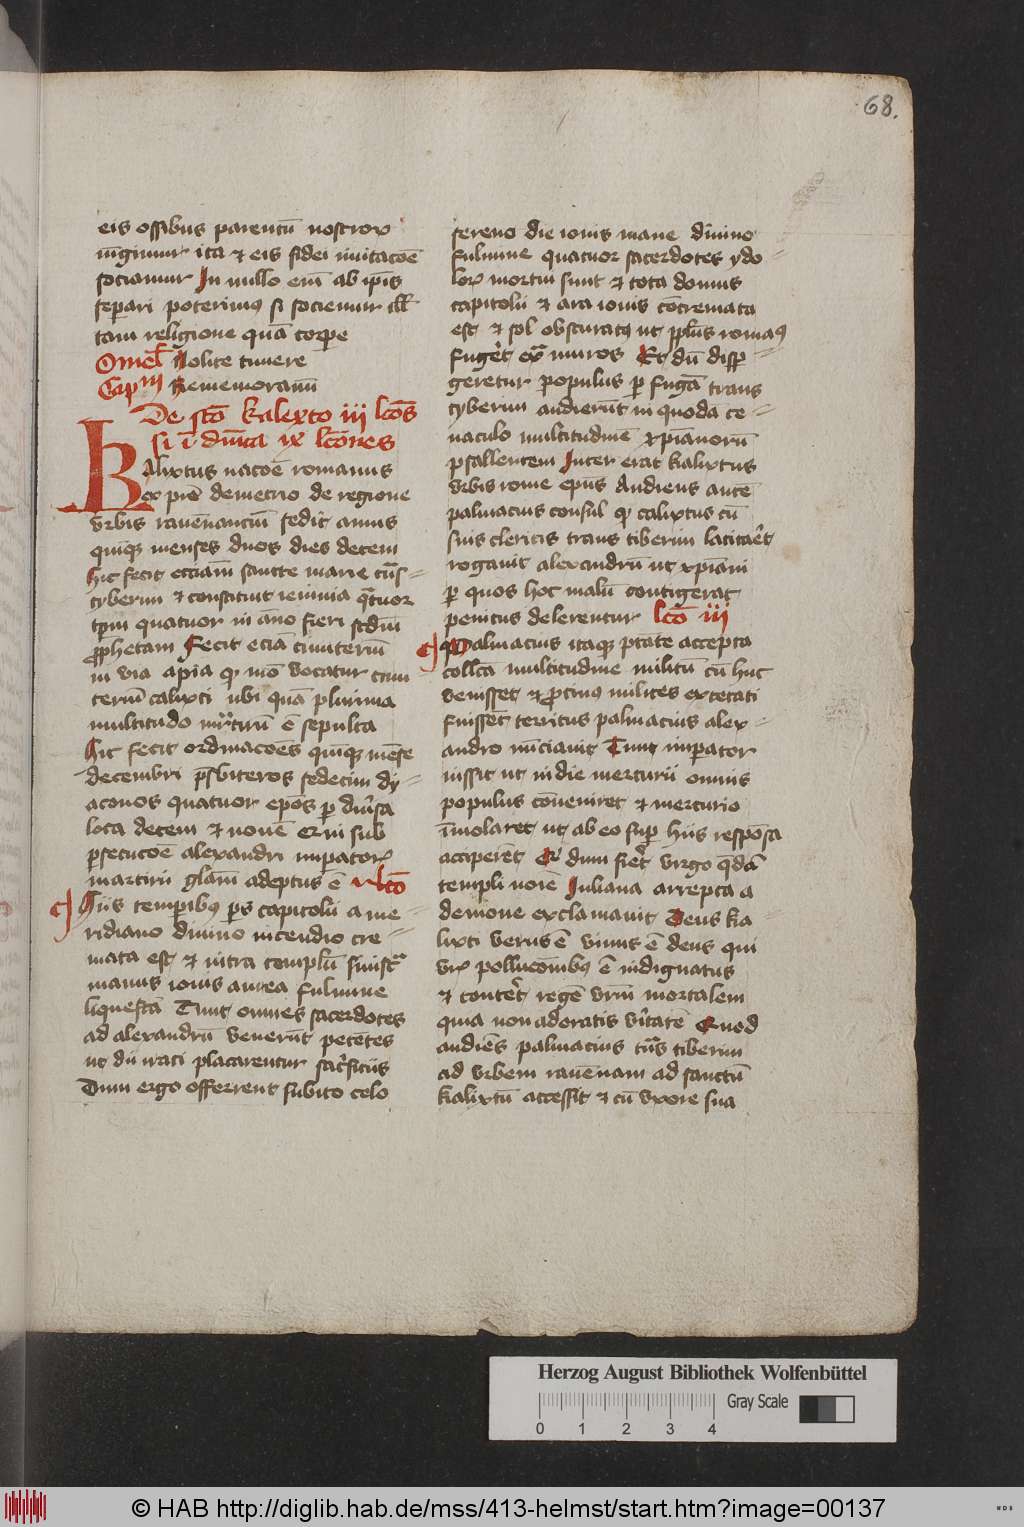 68.
eis ossibus parentū nostrorꝝ
iūgimur ita et eis fidei imitacōe
sociamur In nullo eniꝫ ab ip̄is
seperari poterimꝰ si sociemur
tam religione quā corꝑe
Omel̄ Nolite timere
Cap̄m Rememoramī
De sc̄o kalexto iii lc̄oēs
si ī dn̄ica ix lc̄ones
Kalixtus nacōe romanus
ex pr̄e demetrio de regione
vrbis rauēnanciū sedit annis
quīqꝫ menses duos dies decem
hic fecit eccl̄iam sancte marie
tyberim et constituit ieiunia qͣtuor
tp̄m quatuor in āno fieri scdm̄
ꝓphetam Fecit eciā cimiteriū
in via apia qͥ mō vocatur cimi-
teriū calixti ubi quā plurima
multitudo mr̄tirū ē sepulta
Hic fecit ordinacōes quīqꝫ mēse
decembri pr̄sbiteros sedecim dy-
aconos quatuor epōs ꝑ diu̓sa
loca decem et nouē Et in sub
ꝑsecucōe alexandri imꝑatorꝭ
martirii gl̄am adeptus ē
Hiis temꝑibꝰ ꝑs capitolii a me-
ridiano diuino incendio cre-
mata est et intra templū
manus iouis aurea fulmine
liquefc̄a Tunc omnes sacerdotes
ad alexandrū venerūt petētes
ut dii irati placarentur sacͥficiis
Dum ergo offerrent subito celo
sereno die iouis mane diuino
fulmine quatuor sacerdotes ydo-
lorꝝ mortui sunt et tota domus
capitolii et ara iouis cōcremata
est et sol obscuratꝰ ut pp̄lus romaꝰ
fugeret exͣ muros Et dū disꝑ-
geretur populus ꝑ fugā trans
tyberim audierūt in quodā ce-
naculo multitudinē xp̄ianorū
psallentem Inter erat kalixtus
vrbis rome epūs Audiens autē
palmacius consul qͥ calixtus cū
suis clericis trans tiberim latitaret
rogauit alexandrū ut xp̄iani
ꝑ quos hoc malū contigerat
penitus delerentur lc̄o iii
Palmacius itaqꝫ ptāte accepta
collc̄ā multitudine militū cū huc
venisset et ꝓtinus milites excecati
fuissēt territus palmacius alex-
andro nūciauit Tunc imꝑator
iussit ut in die mercurii omnis
populus cōueniret et mercurio
īmolaret ut ab eo suꝑ hiis respōsa
acciperēt Et dum fieret virgo qͣdā
templi noīe Iuliana arrepta a
demone exclamauit Deus ka-
lixti verus ē viuus ē deus qui
vrīs pollucōnibꝰ ē indignatus
et conteret regē vrm̄ mortalem
quia non adoratis vͥtatē Quod
audiēs palmacius tͣns tiberim
ad vrbem rauēnam ad sanctū
kalixtū accessit et cū vxore sua
Herzog August Bibliothek Wolfenbüttel
Gray Scale
0 1 2 3 4
© HAB http://diglib.hab.de/mss/413-helmst/start.htm?image=00137